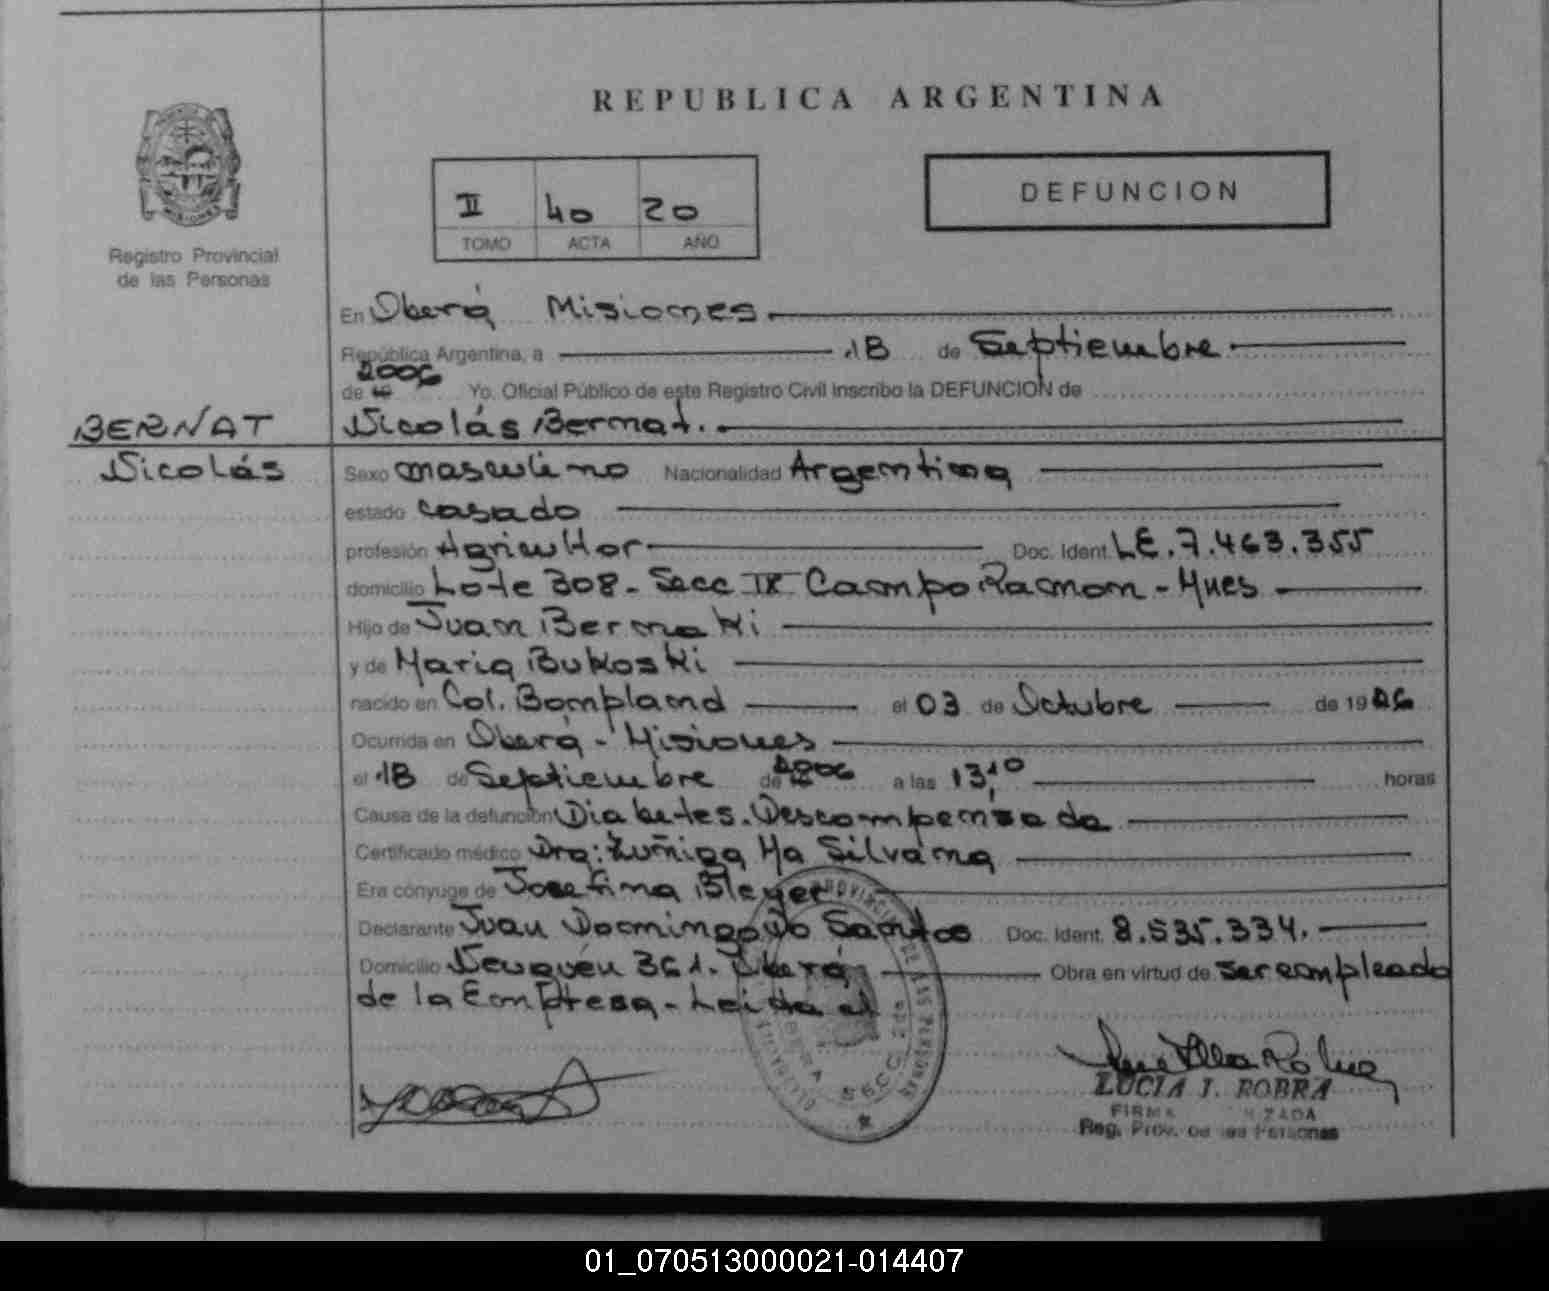 REPUBLICA ARGENTINA
Registro Provincial
de las Personas
II 40 20
TOMO ACTA AÑO
DEFUNCION
En Oberá Misiones
República Argentina, a 18 de Septiembre
de 2006 Yo, Oficial Público de este Registro Civil inscribo la DEFUNCION de
BERNAT
Nicolás Bernat.
Nicolás
Sexo masculino Nacionalidad Argentina
estado casado
profesión Agricultor Doc. Ident. LE.7.463.355
domicilio Lote 308 - Secc IX Campo Ramon - Mnes
Hijo de Juan
y de Maria Bukoski
nacido en Col. Bompland el 03 de Octubre de 19
Ocurrida en Oberá - Misiones
el 18 de Septiembre de 2006 a las 13,10 horas
Causa de la defunción Diabetes. Descompensada
Certificado médico Dra: Zuñiga Ma Silvana
Era cónyuge de Josefina Bleyer
Declarante Juan Domingo Do Santos Doc. Ident. 8.535.334.
Domicilio Neuquén 361. Oberá Obra en virtud de ser empleado
de la Empresa - Leida el
SECC.
LUCIA I. ROBRA
FIRMA
Reg. Prov. de las Personas
01_070513000021-014407